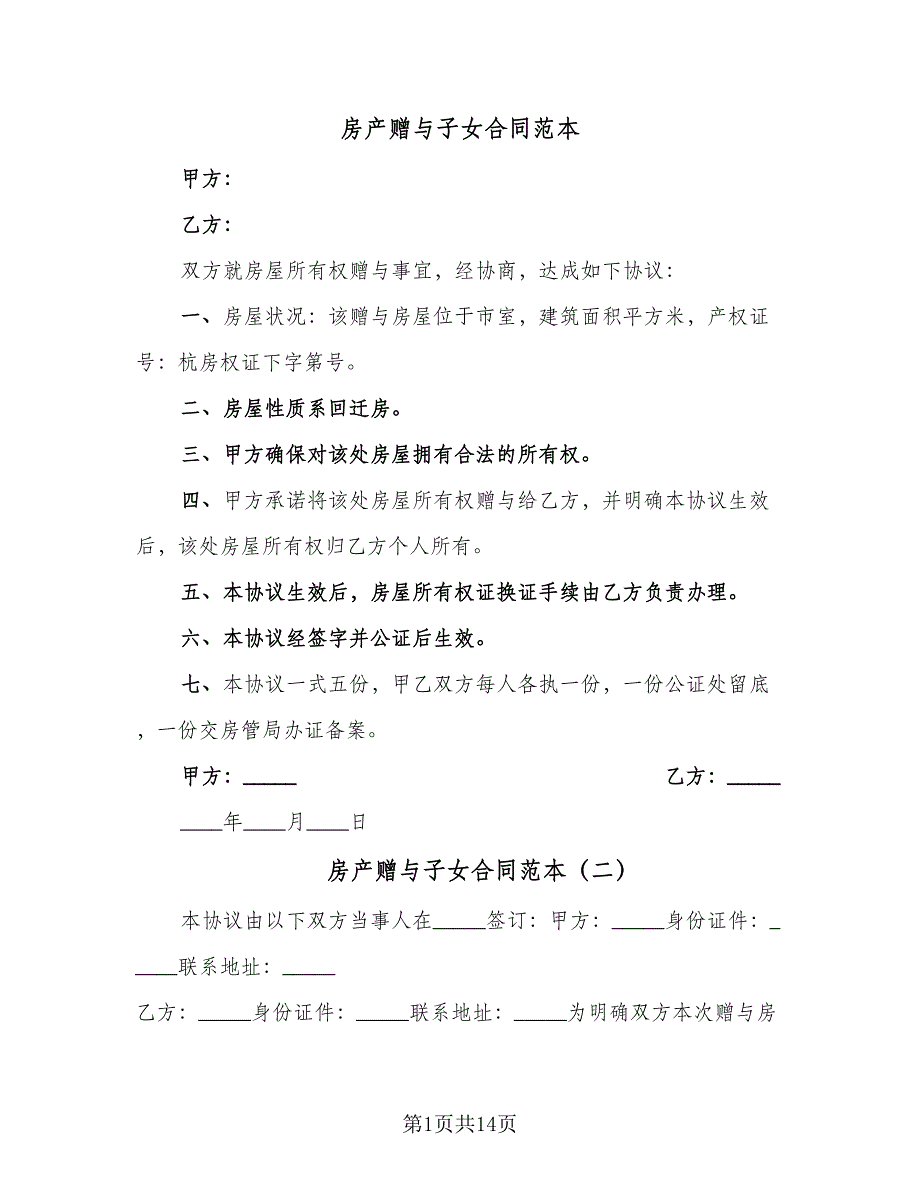 房产赠与子女合同范本
甲方：
乙方：
双方就房屋所有权赠与事宜，经协商，达成如下协议：
一、房屋状况：该赠与房屋位于市室，建筑面积平方米，产权证
号：杭房权证下字第号。
二、房屋性质系回迁房。
三、甲方确保对该处房屋拥有合法的所有权。
四、甲方承诺将该处房屋所有权赠与给乙方，并明确本协议生效
后，该处房屋所有权归乙方个人所有。
五、本协议生效后，房屋所有权证换证手续由乙方负责办理。
六、本协议经签字并公证后生效。
七、本协议一式五份，甲乙双方每人各执一份，一份公证处留底
，一份交房管局办证备案。
甲方：_____ 乙方：_____
____年____月____日
房产赠与子女合同范本（二）
本协议由以下双方当事人在_____签订：甲方：_____身份证件：_
____联系地址：_____
乙方：_____身份证件：_____联系地址：_____为明确双方本次赠与房
第1页共14页